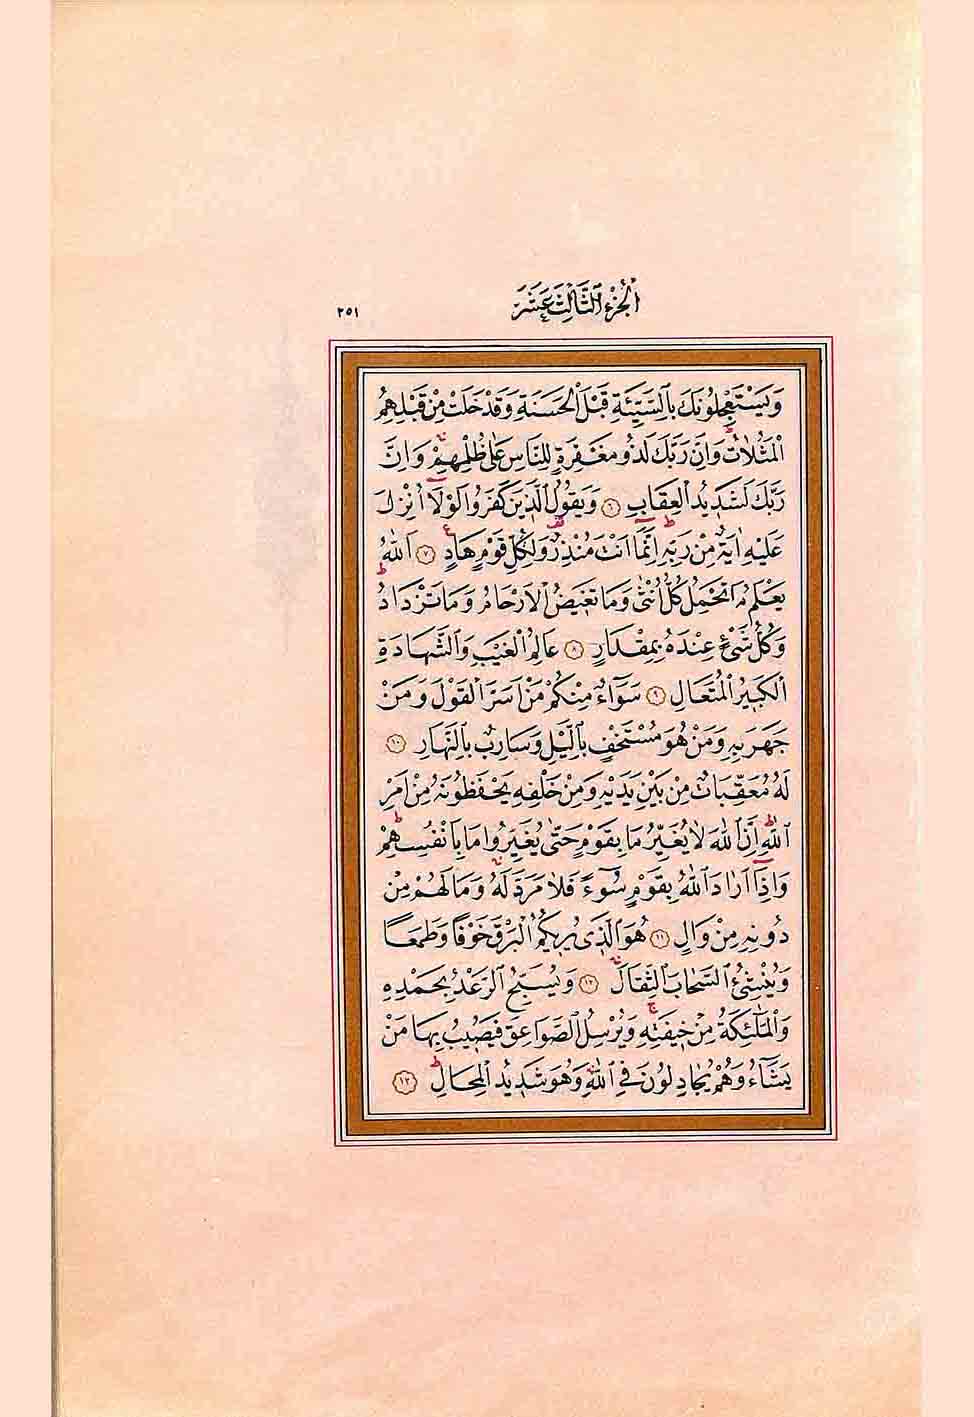 اَلْجُزْءُ الثَّالِثَ عَشَرَ
٢٥١
وَيَسْتَعْجِلُونَكَ بِالسَّيِّئَةِ قَبْلَ الْحَسَنَةِ وَقَدْ خَلَتْ مِنْ قَبْلِهِمُ
الْمَثُلَاتُ وَاِنَّ رَبَّكَ لَذُو مَغْفِرَةٍ لِلنَّاسِ عَلٰى ظُلْمِهِمْ وَاِنَّ
رَبَّكَ لَشَدِيدُ الْعِقَابِ ٦ وَيَقُولُ الَّذِينَ كَفَرُوا لَوْلَٓا اُنْزِلَ
عَلَيْهِ اٰيَةٌ مِنْ رَبِّهِ اِنَّمَٓا اَنْتَ مُنْذِرٌ وَلِكُلِّ قَوْمٍ هَادٍ ٧ اَللّٰهُ
يَعْلَمُ مَا تَحْمِلُ كُلُّ اُنْثٰى وَمَا تَغِيضُ الْاَرْحَامُ وَمَا تَزْدَادُ
وَكُلُّ شَيْءٍ عِنْدَهُ بِمِقْدَارٍ ٨ عَالِمُ الْغَيْبِ وَالشَّهَادَةِ
الْكَبِيرُ الْمُتَعَالِ ٩ سَوَٓاءٌ مِنْكُمْ مَنْ اَسَرَّ الْقَوْلَ وَمَنْ
جَهَرَ بِهِ وَمَنْ هُوَ مُسْتَخْفٍ بِالَّيْلِ وَسَارِبٌ بِالنَّهَارِ ١٠
لَهُ مُعَقِّبَاتٌ مِنْ بَيْنِ يَدَيْهِ وَمِنْ خَلْفِهِ يَحْفَظُونَهُ مِنْ اَمْرِ
اللّٰهِ اِنَّ اللّٰهَ لَا يُغَيِّرُ مَا بِقَوْمٍ حَتّٰى يُغَيِّرُوا مَا بِاَنْفُسِهِمْ
وَاِذَٓا اَرَادَ اللّٰهُ بِقَوْمٍ سُٓوءًا فَلَا مَرَدَّ لَهُ وَمَا لَهُمْ مِنْ
دُونِهِ مِنْ وَالٍ ١١ هُوَ الَّذِى يُرِيكُمُ الْبَرْقَ خَوْفًا وَطَمَعًا
وَيُنْشِئُ السَّحَابَ الثِّقَالَ ١٢ وَيُسَبِّحُ الرَّعْدُ بِحَمْدِهِ
وَالْمَلٰٓئِكَةُ مِنْ خِيفَتِهِ وَيُرْسِلُ الصَّوَاعِقَ فَيُصِيبُ بِهَا مَنْ
يَشَٓاءُ وَهُمْ يُجَادِلُونَ فِى اللّٰهِ وَهُوَ شَدِيدُ الْمِحَالِ ١٣